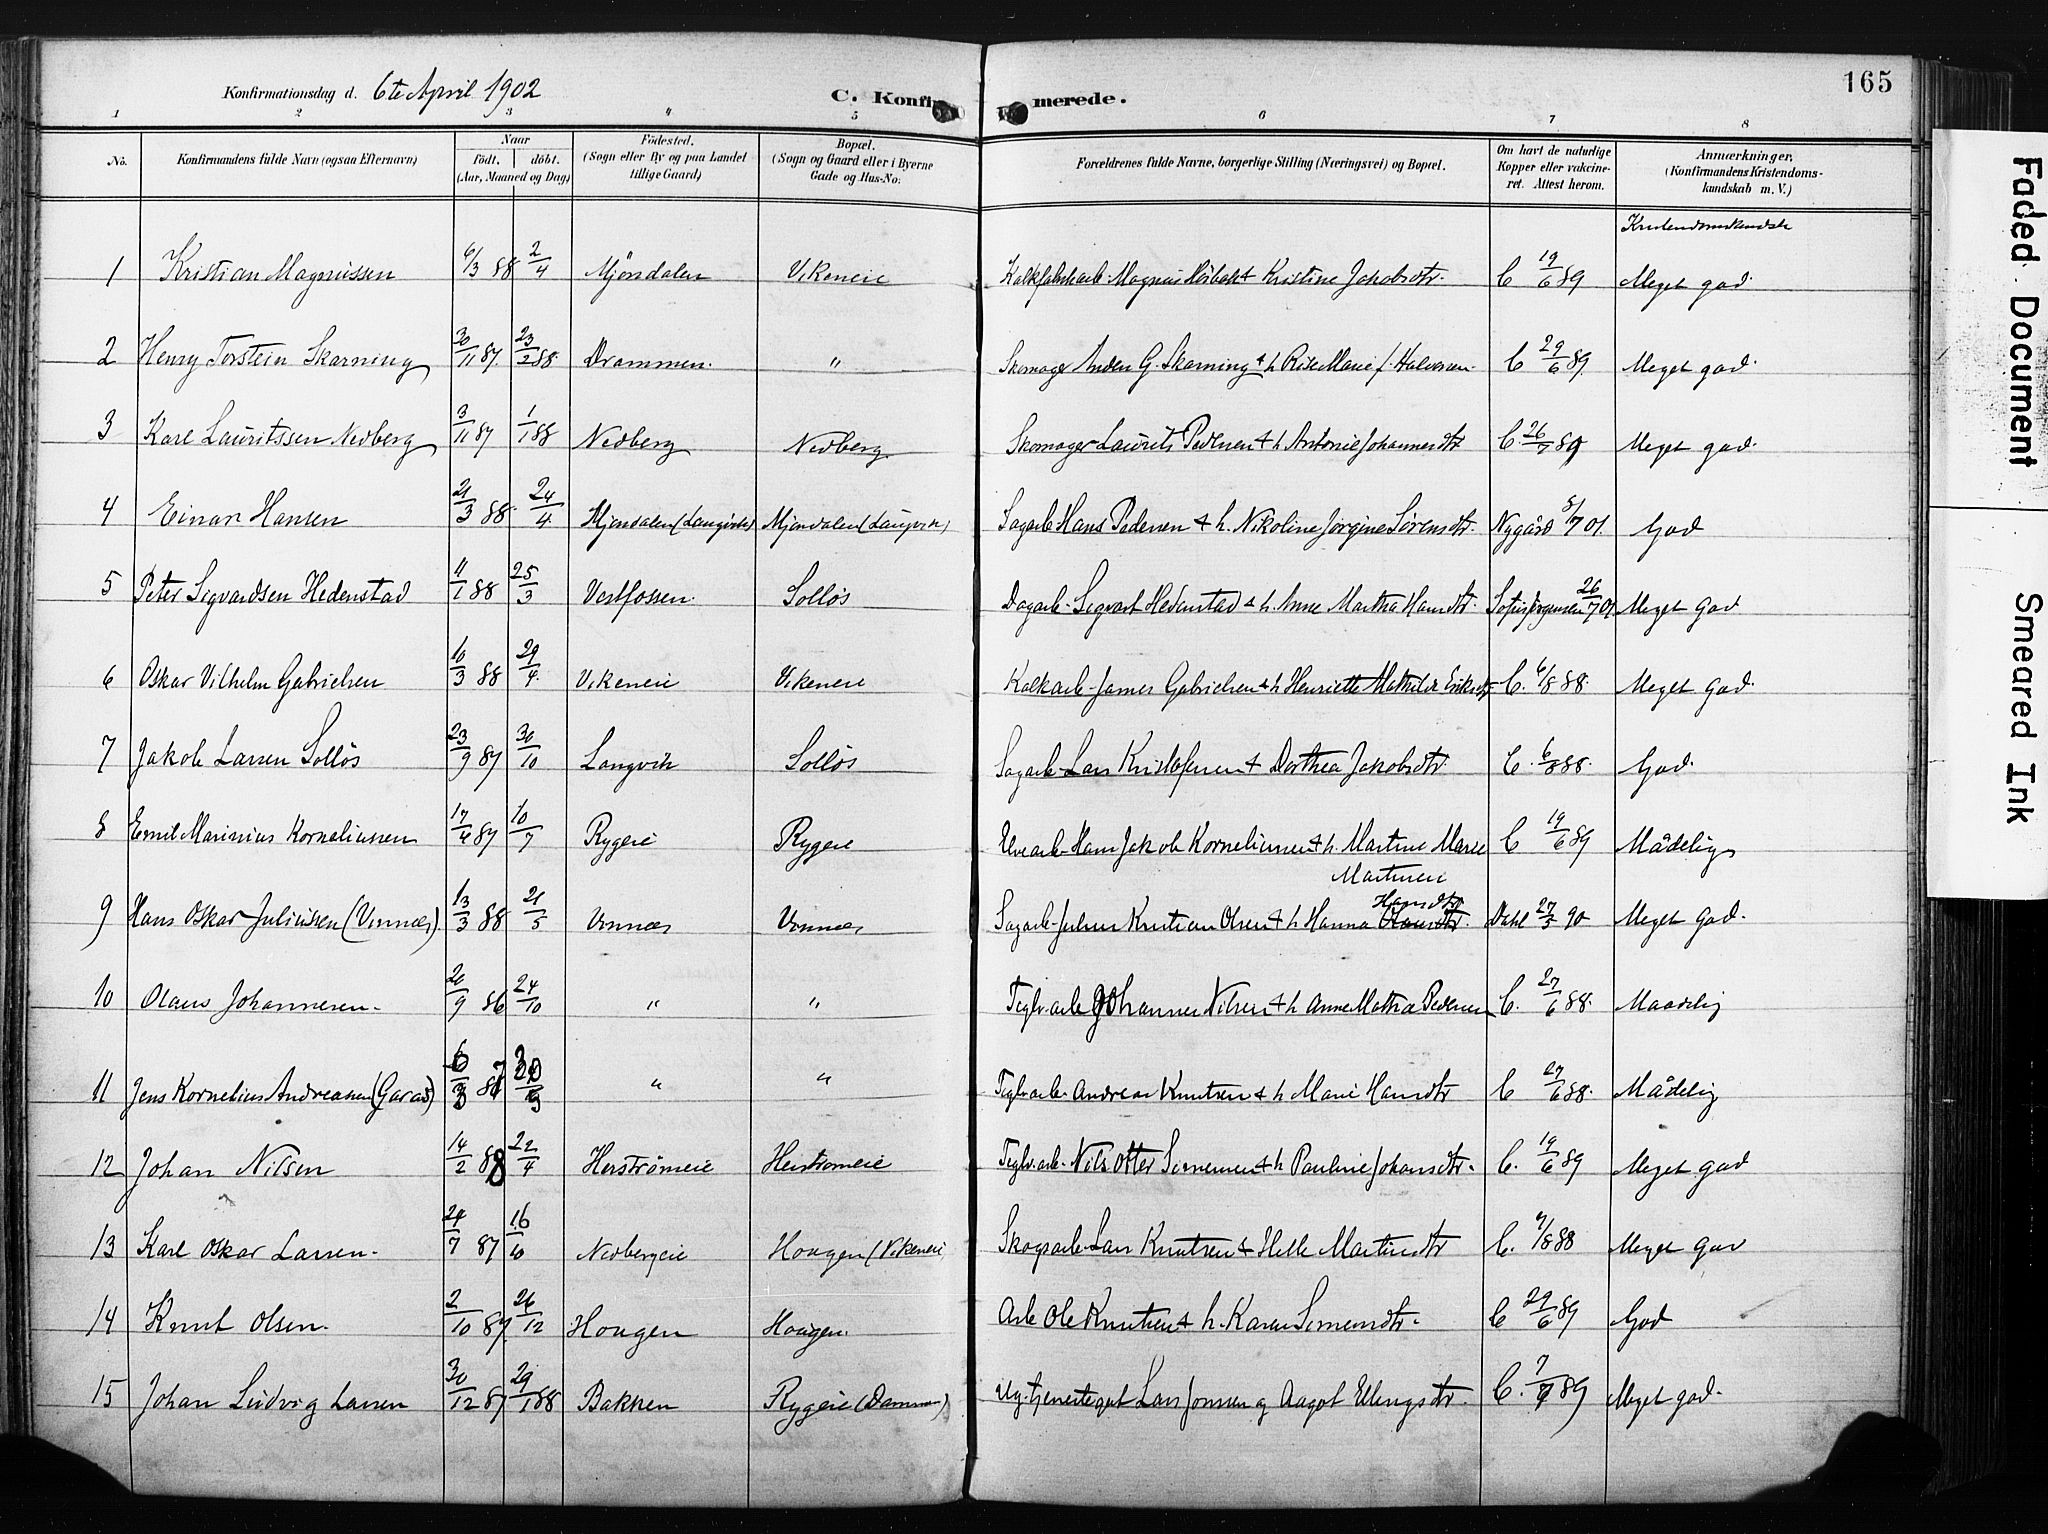 165
Konfirmationsdag d. 6te April 1902 C. Konfirmerede.
1 2 3 " 5 6 7 8
No. Konfirmandens fulde Navn (ogsaa Efternavn) Naar født. døbt. (Aar, Maaned og Dag) Fødested. (Sogn eller By og paa Landet tillige Gaard) Bopæl. (Sogn og Gaard eller i Byerne Gade og Hus-No. Forældrenes fulde Navne, borgerlige Stilling (Næringsvei) og Bopæl. Om havt de naturlige Kopper eller vakcineret. Attest herom. Anmærkninger, (Konfirmandens Kristendomskundskab m. V.)
Kristendomskundskab
1 Kristian Magnussen 6/3 88 2/4 Mjøndalen Vikeneie Kalkfabrikarb. Magnus & Kristine Jakobsdtr. C 19/6 89 Meget god.
2 Henry Torstein Skarning 30/11 87. 23/2 88 Drammen. " Skomager Anders G. Skarning & h. Marie f. Halvorsen. C 29/6 89 Meget god.
3 Karl Lauritssen Nedberg 3/11 87 1/1 88 Nedberg Nedberg Skomager Laurits Pedersen & h. Antonie Johannesdtr C. 26/7 89 Meget god.
4 Einar Hansen 21/3 88 24/4 Mjøndalen (Langvik) Mjøndalen (Langvik) Sagarb. Hans Pedersen & h. Nikoline Jørgine Sørensdtr. Nygård 5/7 01. God
5 Peter Sigvardsen Hedenstad 11/1 88 25/3 Vestfossen. Solløs Dagarb. Sigvart Hedenstad & h. Anne Martha Hansdtr. 26/7 01 Meget God
6 Oskar Vilhelm Gabrielsen 10/3 88 29/4 Vikeneie Vikeneie Kalkarb. James Gabrielsen & h Henriette Mathilde Eriksdtr C. 6/8 88. Meget God.
7 Jakob Larsen Solløs 23/9 87 30/10 Langvik Solløs Sagarb. Lars Kristofersen & Dorthea Jakobsdtr. C. 6/8 88. God.
8 Emil Marinius Korneliussen 17/4 87 10/7 Rygeie Rygeie Elvearb. Hans Jakob Korneliussen & h. Martine Marie C 19/6 89 Mådelig
Martinsen
9 Hans Oskar Juliussen (Vinnæs). 13/3 88 21/5 Vinnæs Vinnæs Sagarb. Julius Kristian Olsen & h Hanna Hansdtr Dahl 27/3 90 Meget God.
10 Olaus Johannesen. 20/9 86 24/10 " " Teglv.arb. Johannes Nilsen & h Anne Mathea Pedersen C. 27/6 88. Maadelig
11 Jens Kornelius Andreasen 87 " " Teglv.arb. Andreas Knutsen & h Marie Hansdtr C 27/6 88. Mådelig
12 Johan Nilsen 14/2 88 22/4 Herstrømeie Herstrømeie Teglv.arb. Nils Otter Simensen & h Pauline Johansdtr. C. 19/6 89 Meget god
13 Karl Oskar Larsen. 24/7 87 16/10 Nedbergeie Hougen (Vikeneie Skogsarb. Lars Knutsen & Helle Martinsdtr C. 7/8 88 Meget God
14 Knut Olsen. 2/10 87 26/12 Hougen Hougen. Arb. Ole Knutsen & h. Karen Simensdtr. C 29/6 89 God
15 Johan Ludvig Larsen 30/12 87 29/1 88 Bakken Rygeie (Dammen) Ug. tjenestegut Lars Jonsen og Aagot Ellingsdtr. C. 89 Meget god.
Faded Document
Smeared Ink